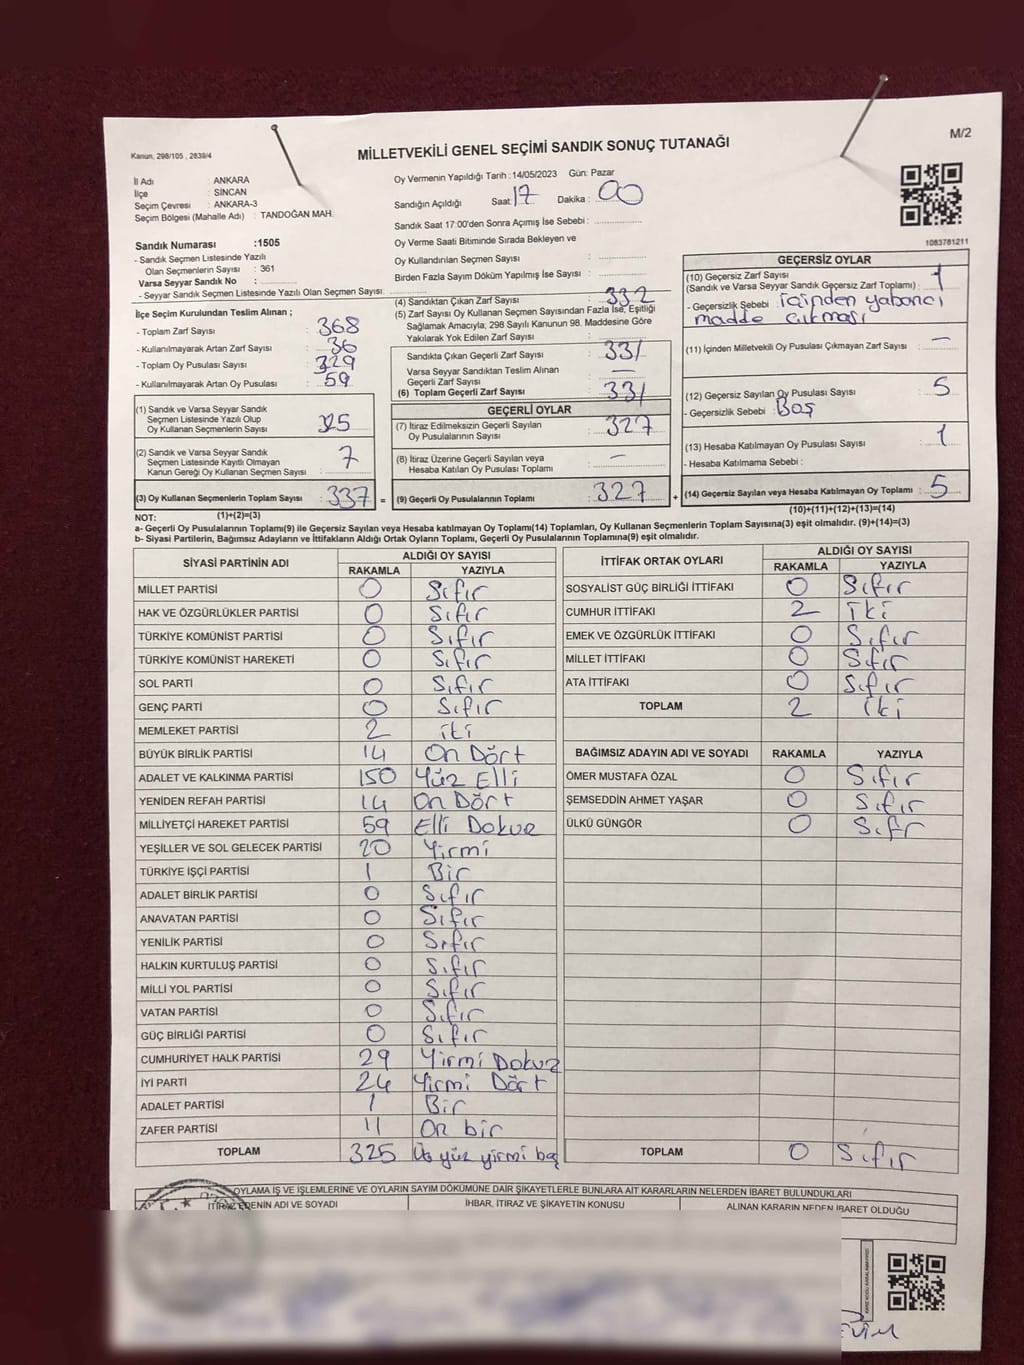 Kanun, 298/105 , 2839/4
M/2
MİLLETVEKİLİ GENEL SEÇİMİ SANDIK SONUÇ TUTANAĞI
İl Adı : ANKARA
İlçe : SİNCAN
Seçim Çevresi : ANKARA-3
Seçim Bölgesi (Mahalle Adı) : TANDOĞAN MAH.
Sandık Numarası :1505
- Sandık Seçmen Listesinde Yazılı
Olan Seçmenlerin Sayısı : 361
Varsa Seyyar Sandık No :
- Seyyar Sandık Seçmen Listesinde Yazılı Olan Seçmen Sayısı:
Oy Vermenin Yapıldığı Tarih :14/05/2023 Gün: Pazar
Sandığın Açıldığı Saat: 17 Dakika : 00
Sandık Saat 17:00'den Sonra Açımış İse Sebebi :
Oy Verme Saati Bitiminde Sırada Bekleyen ve
Oy Kullandırılan Seçmen Sayısı :
Birden Fazla Sayım Döküm Yapılmış İse Sayısı :
1083781211
İlçe Seçim Kurulundan Teslim Alınan ;
- Toplam Zarf Sayısı : 368
- Kullanılmayarak Artan Zarf Sayısı : 36
- Toplam Oy Pusulası Sayısı : 329
- Kullanılmayarak Artan Oy Pusulası : 59
(1) Sandık ve Varsa Seyyar Sandık
Seçmen Listesinde Yazılı Olup
Oy Kullanan Seçmenlerin Sayısı : 325
(2) Sandık ve Varsa Seyyar Sandık
Seçmen Listesinde Kayıtlı Olmayan
Kanun Gereği Oy Kullanan Seçmen Sayısı : 7
(3) Oy Kullanan Seçmenlerin Toplam Sayısı : 337 =
(1)+(2)=(3)
(4) Sandıktan Çıkan Zarf Sayısı : 332
(5) Zarf Sayısı Oy Kullanan Seçmen Sayısından Fazla İse, Eşitliği
Sağlamak Amacıyla; 298 Sayılı Kanunun 98. Maddesine Göre
Yakılarak Yok Edilen Zarf Sayısı :
Sandıkta Çıkan Geçerli Zarf Sayısı : 331
Varsa Seyyar Sandıktan Teslim Alınan
Geçerli Zarf Sayısı : -
(6) Toplam Geçerli Zarf Sayısı : 331
GEÇERLİ OYLAR
(7) İtiraz Edilmeksizin Geçerli Sayılan
Oy Pusulalarının Sayısı : 327
(8) İtiraz Üzerine Geçerli Sayılan veya
Hesaba Katılan Oy Pusulası Toplamı : -
(9) Geçerli Oy Pusulalarının Toplamı : 327 +
GEÇERSİZ OYLAR
(10) Geçersiz Zarf Sayısı
(Sandık ve Varsa Seyyar Sandık Geçersiz Zarf Toplamı) : 1
- Geçersizlik Sebebi : içinden yabancı
madde çıkması
(11) İçinden Milletvekili Oy Pusulası Çıkmayan Zarf Sayısı : -
(12) Geçersiz Sayılan Oy Pusulası Sayısı : 5
- Geçersizlik Sebebi : Boş
(13) Hesaba Katılmayan Oy Pusulası Sayısı : 1
- Hesaba Katılmama Sebebi :
(14) Geçersiz Sayılan veya Hesaba Katılmayan Oy Toplamı : 5
(10)+(11)+(12)+(13)=(14)
NOT:
a- Geçerli Oy Pusulalarının Toplamı(9) ile Geçersiz Sayılan veya Hesaba katılmayan Oy Toplamı(14) Toplamları, Oy Kullanan Seçmenlerin Toplam Sayısına(3) eşit olmalıdır. (9)+(14)=(3)
b- Siyasi Partilerin, Bağımsız Adayların ve İttifakların Aldığı Ortak Oyların Toplamı, Geçerli Oy Pusulalarının Toplamına(9) eşit olmalıdır.
SİYASİ PARTİNİN ADI ALDIĞI OY SAYISI
RAKAMLA YAZIYLA
MİLLET PARTİSİ 0 Sıfır
HAK VE ÖZGÜRLÜKLER PARTİSİ 0 Sıfır
TÜRKİYE KOMÜNİST PARTİSİ 0 Sıfır
TÜRKİYE KOMÜNİST HAREKETİ 0 Sıfır
SOL PARTİ 0 Sıfır
GENÇ PARTİ 0 Sıfır
MEMLEKET PARTİSİ 2 iki
BÜYÜK BİRLİK PARTİSİ 14 On Dört
ADALET VE KALKINMA PARTİSİ 150 Yüz Elli
YENİDEN REFAH PARTİSİ 14 On Dört
MİLLİYETÇİ HAREKET PARTİSİ 59 Elli Dokuz
YEŞİLLER VE SOL GELECEK PARTİSİ 20 Yirmi
TÜRKİYE İŞÇİ PARTİSİ 1 Bir
ADALET BİRLİK PARTİSİ 0 Sıfır
ANAVATAN PARTİSİ 0 Sıfır
YENİLİK PARTİSİ 0 Sıfır
HALKIN KURTULUŞ PARTİSİ 0 Sıfır
MİLLİ YOL PARTİSİ 0 Sıfır
VATAN PARTİSİ 0 Sıfır
GÜÇ BİRLİĞİ PARTİSİ 0 Sıfır
CUMHURİYET HALK PARTİSİ 29 Yirmi Dokuz
İYİ PARTİ 24 Yirmi Dört
ADALET PARTİSİ 1 Bir
ZAFER PARTİSİ 11 On bir
TOPLAM 325 Üç yüz yirmi beş
İTTİFAK ORTAK OYLARI ALDIĞI OY SAYISI
RAKAMLA YAZIYLA
SOSYALİST GÜÇ BİRLİĞİ İTTİFAKI 0 Sıfır
CUMHUR İTTİFAKI 2 İki
EMEK VE ÖZGÜRLÜK İTTİFAKI 0 Sıfır
MİLLET İTTİFAKI 0 Sıfır
ATA İTTİFAKI 0 Sıfır
TOPLAM 2 İki
BAĞIMSIZ ADAYIN ADI VE SOYADI RAKAMLA YAZIYLA
ÖMER MUSTAFA ÖZAL 0 Sıfır
ŞEMSEDDİN AHMET YAŞAR 0 Sıfır
ÜLKÜ GÜNGÖR 0 Sıfr
TOPLAM 0 Sıfır
OYLAMA İŞ VE İŞLEMLERİNE VE OYLARIN SAYIM DÖKÜMÜNE DAİR ŞİKAYETLERLE BUNLARA AİT KARARLARIN NELERDEN İBARET BULUNDUKLARI
İTİRAZ EDENİN ADI VE SOYADI İHBAR, İTİRAZ VE ŞİKAYETİN KONUSU ALINAN KARARIN NEDEN İBARET OLDUĞU